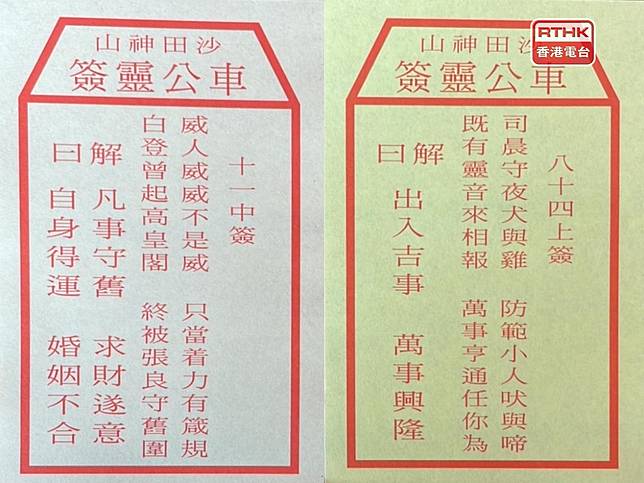 沙田神山
車公靈簽
十一中簽
威人威威不是威 只當着力有箴規
白登曾起高皇閣 終被張良守舊圍
解 凡事守舊 求財遂意
曰 自身得運 婚姻不合
RTHK
香港電台
沙田神山
車公靈簽
八十四上簽
司晨守夜犬與雞 防範小人吠與啼
既有靈音來相報 萬事亨通任你為
解
曰 出入吉事 萬事興隆